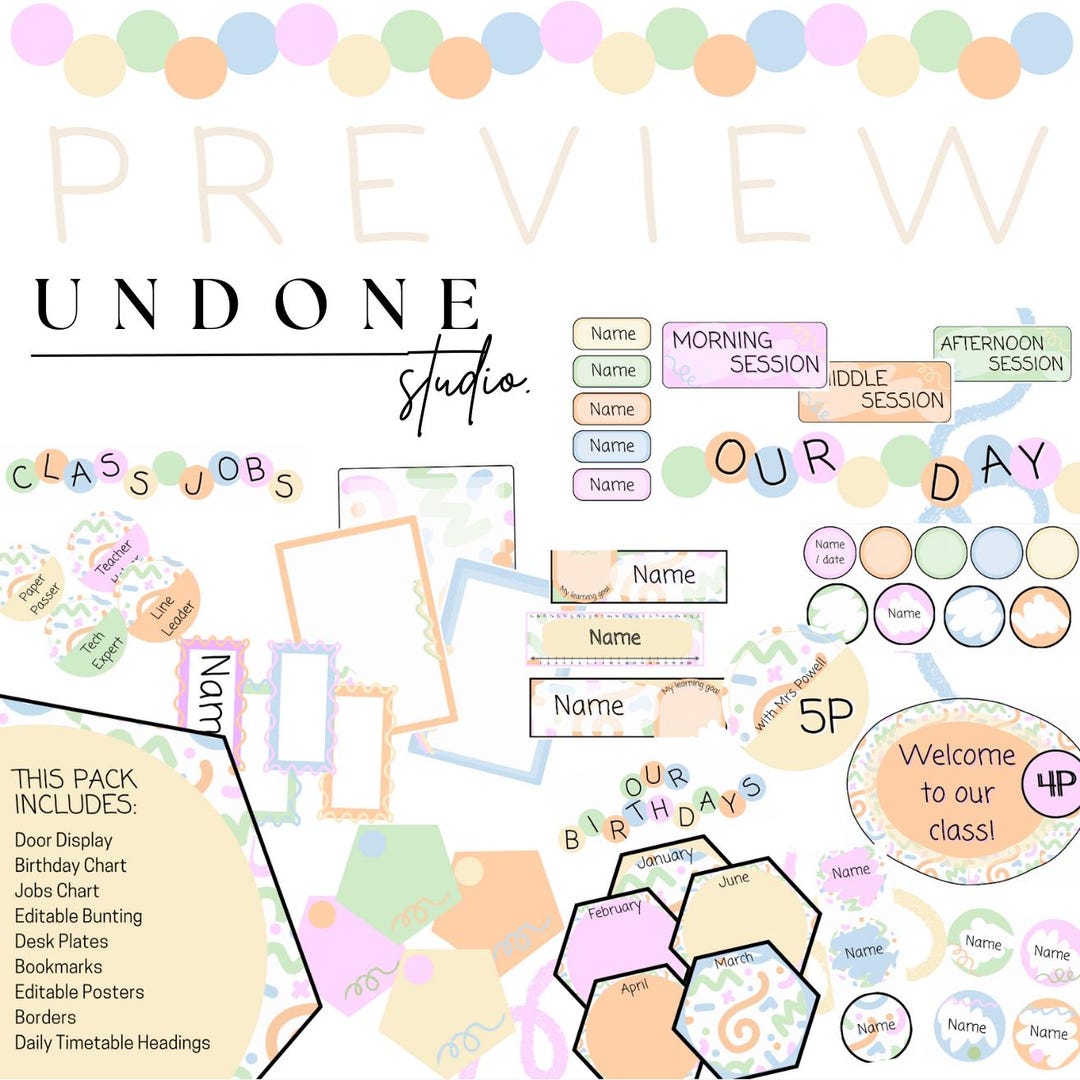 PREVIEW
UNDONE
studio.
Name
Name
Name
Name
Name
MORNING
SESSION
MIDDLE
SESSION
AFTERNOON
SESSION
OUR DAY
CLASS JOBS
Teacher
Paper
Passer
Line
Leader
Tech
Expert
Name
/ date
Name
My learning goal
Name
Name
Name
My learning goal
with Mrs Powell
5P
Nam
Welcome
to our
class!
4P
THIS PACK
INCLUDES:
Door Display
Birthday Chart
Jobs Chart
Editable Bunting
Desk Plates
Bookmarks
Editable Posters
Borders
Daily Timetable Headings
OUR
BIRTHDAYS
January
June
February
March
April
Name
Name
Name
Name
Name
Name
Name